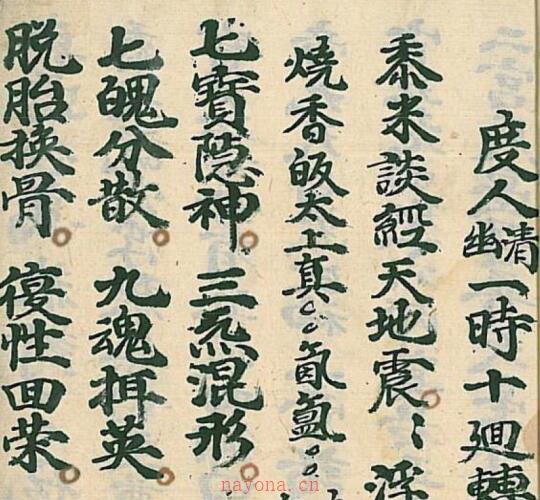 度人清幽一時十廻轉
黍米談經天地震〻浮
燒香皈太上真。。氤氳。。
七寶隐神。三炁混形。
七魄分散。九魂英。
脫胎换骨。復性回荣。
nayona.cn